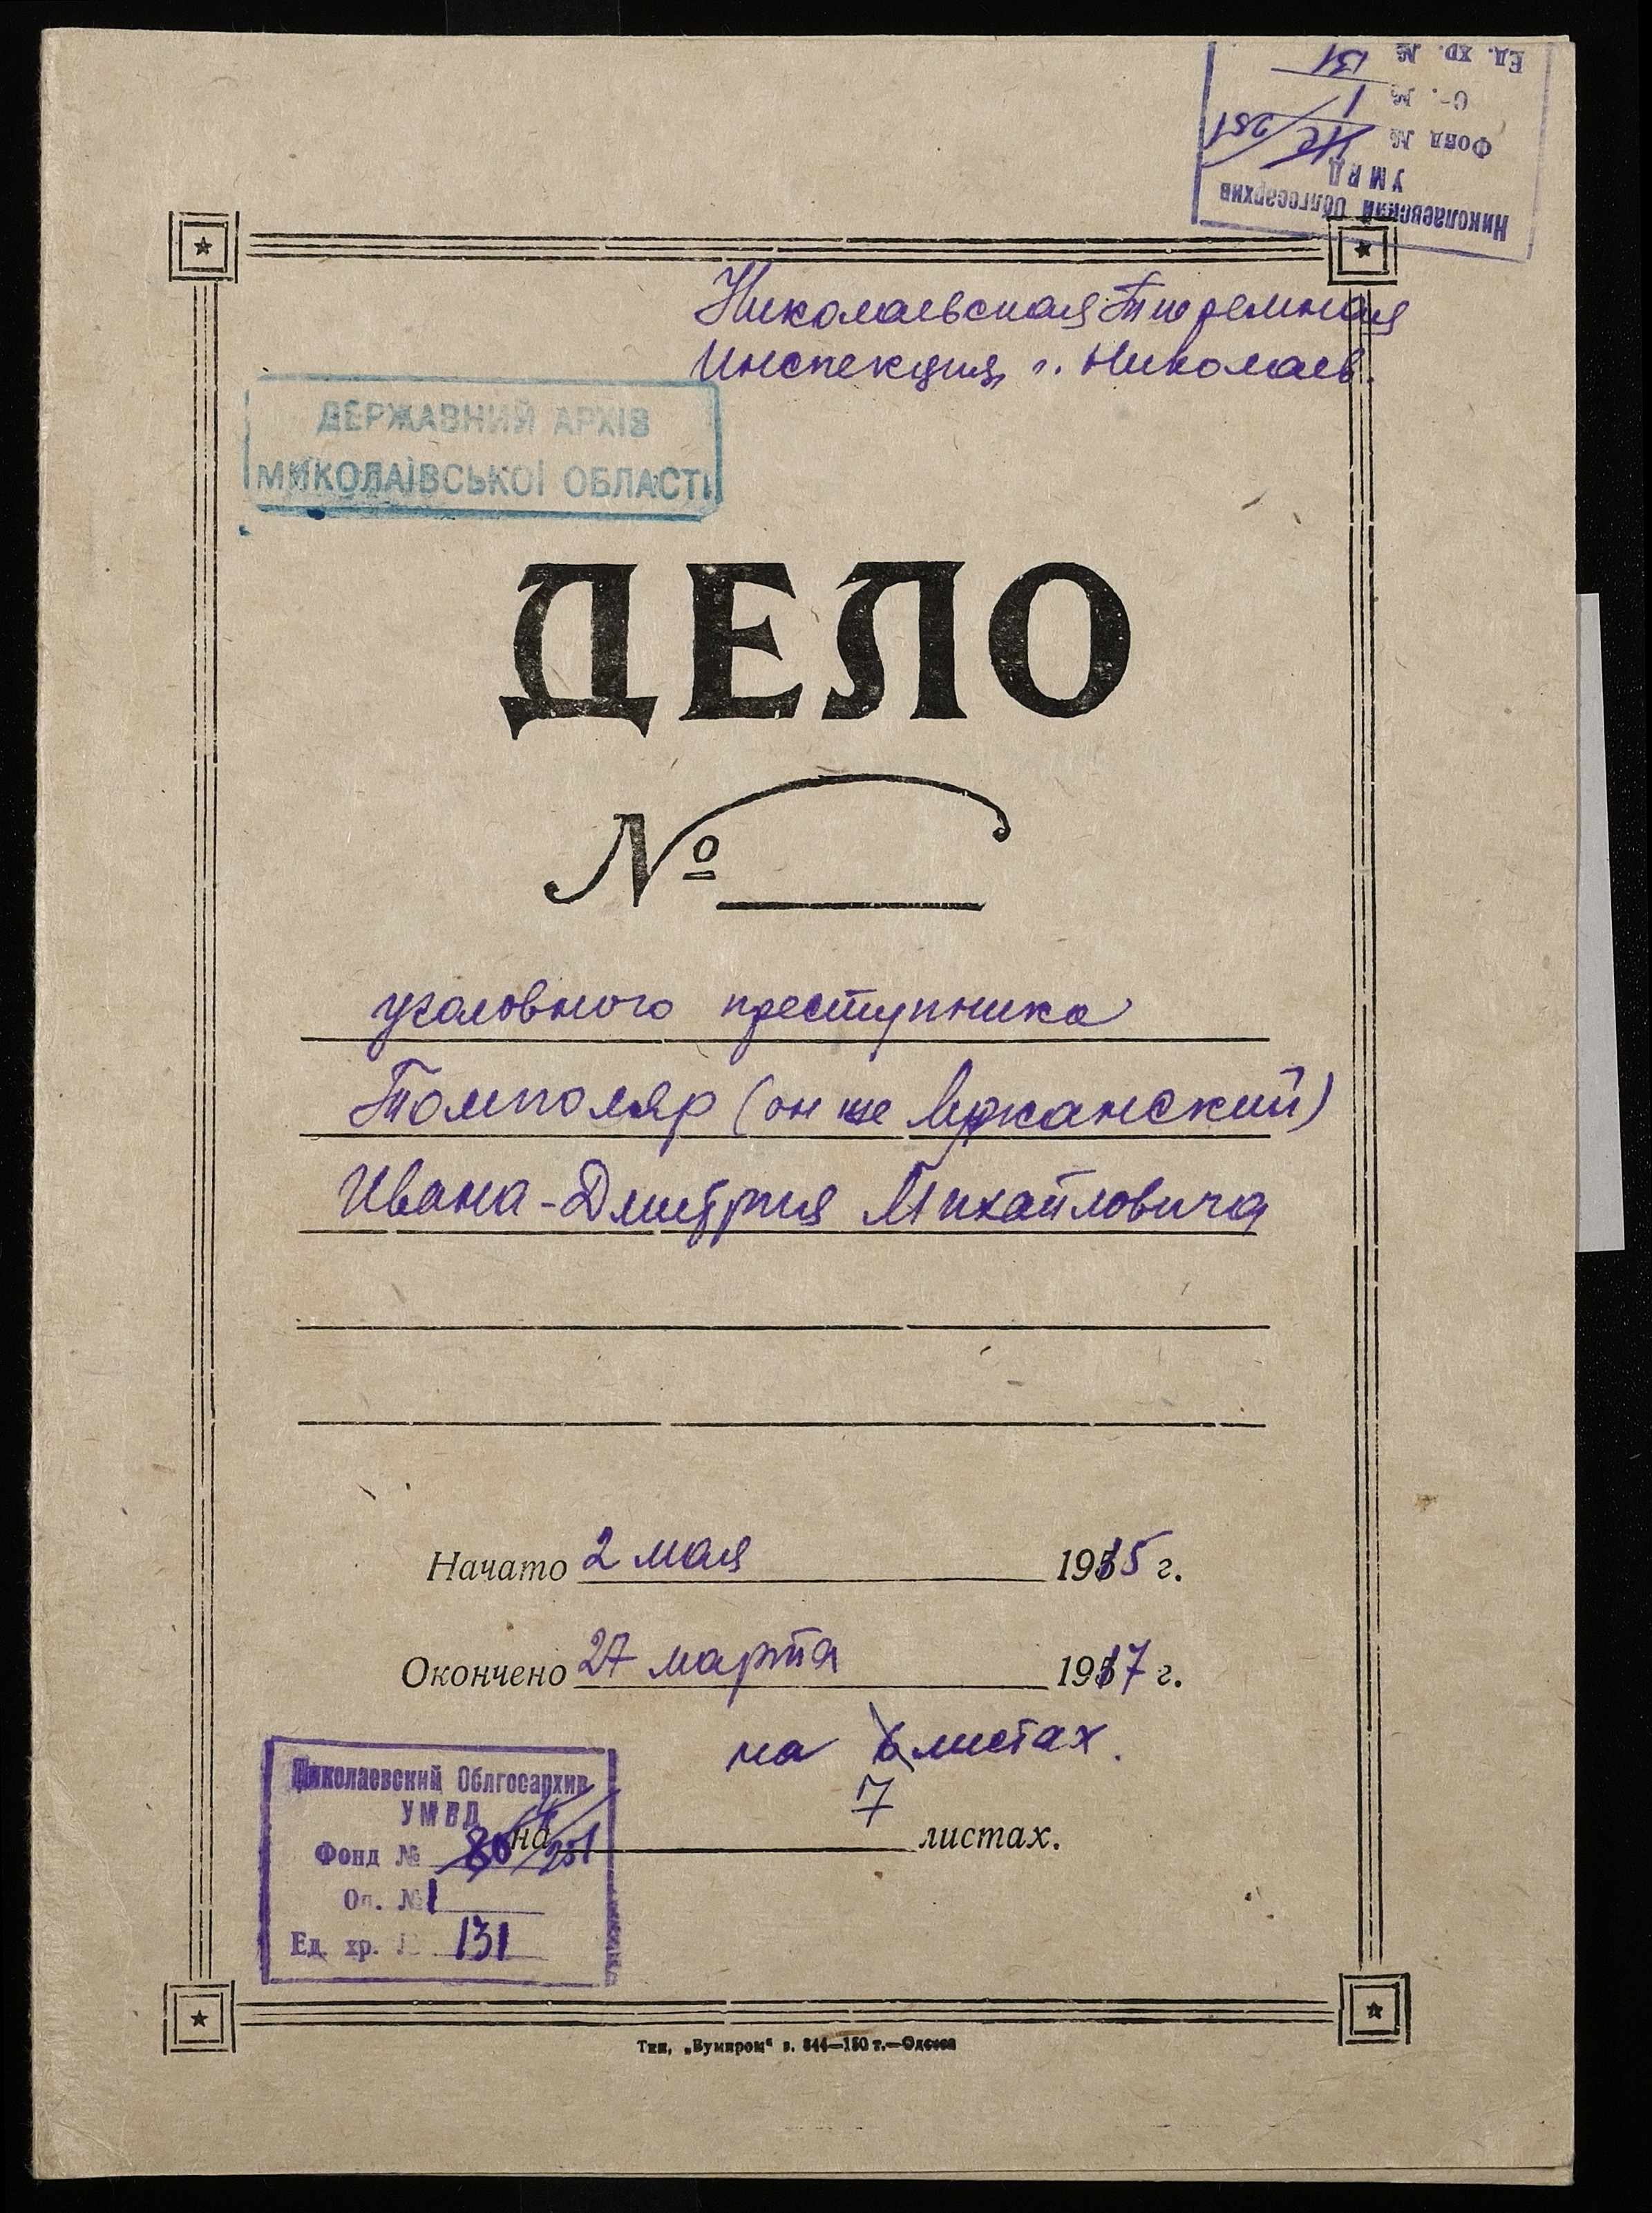 Ед. хр. № 131
О. № 1
Фонд № 251
УМВД
Николаевский Облгосархив
Николаевская Тюремная
Инспекция г. Николаев.
ДЕРЖАВНИЙ АРХІВ
МИКОЛАЇВСЬКОЇ ОБЛАСТІ
ДЕЛО
№
уголовного преступника
Томполяр (он же
Ивана-Дмитрия Михайловича
Начато 2 мая 1915 г.
Окончено 27 марта 1917 г.
на 6 листах.
7
на листах.
Николаевский Облгосархив
УМВД
Фонд № 86 251
Оп. № 1
Ед. хр. № 131
Тип, „Бумпром“ з. 844—150 т.—Одесса